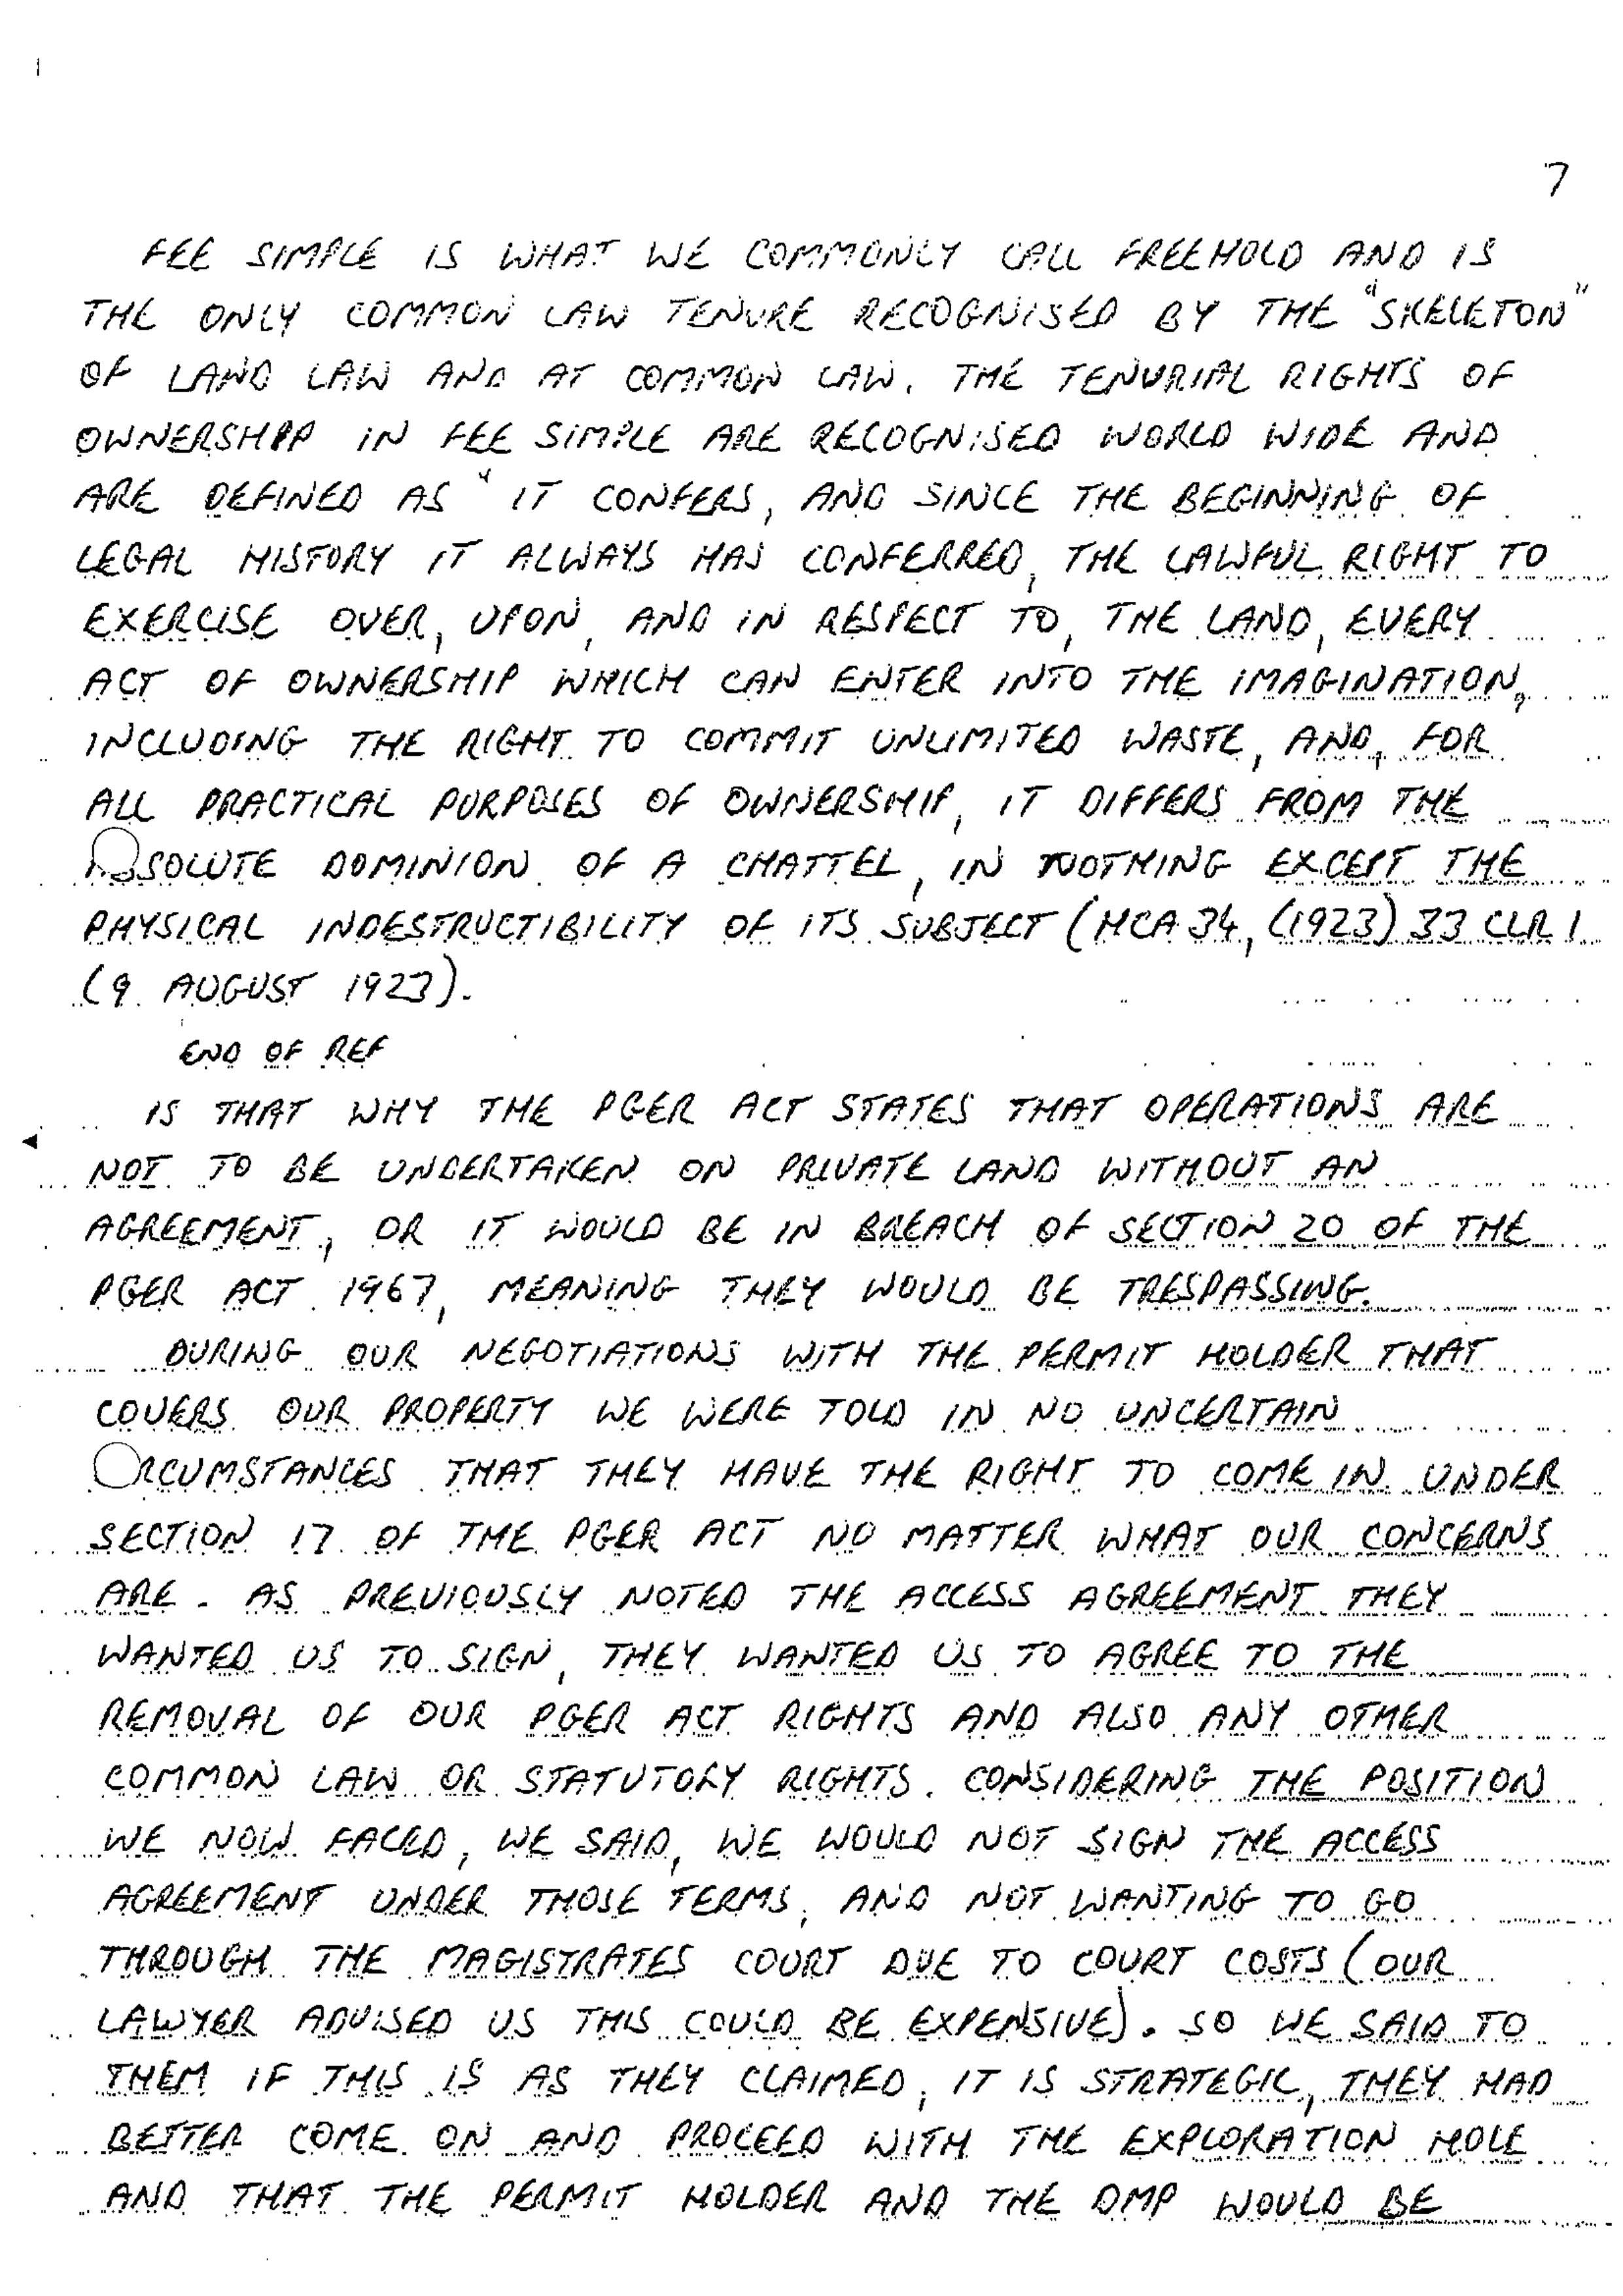 7
FEE SIMPLE IS WHAT WE COMMONLY CALL FREEHOLD AND IS
THE ONLY COMMON LAW TENURE RECOGNISED BY THE "SKELETON"
OF LAND LAW AND AT COMMON LAW. THE TENURIAL RIGHTS OF
OWNERSHIP IN FEE SIMPLE ARE RECOGNISED WORLD WIDE AND
ARE DEFINED AS " IT CONFERS, AND SINCE THE BEGINNING OF
LEGAL HISTORY IT ALWAYS HAS CONFERRED, THE LAWFUL RIGHT TO
EXERCISE OVER, UPON, AND IN RESPECT TO, THE LAND, EVERY
ACT OF OWNERSHIP WHICH CAN ENTER INTO THE IMAGINATION,
INCLUDING THE RIGHT TO COMMIT UNLIMITED WASTE, AND, FOR
ALL PRACTICAL PURPOSES OF OWNERSHIP, IT DIFFERS FROM THE
ABSOLUTE DOMINION OF A CHATTEL, IN NOTHING EXCEPT THE
PHYSICAL INDESTRUCTIBILITY OF ITS SUBJECT (HCA 34, (1923) 33 CLR 1
(9 AUGUST 1923).
END OF REF
IS THAT WHY THE PGER ACT STATES THAT OPERATIONS ARE
NOT TO BE UNDERTAKEN ON PRIVATE LAND WITHOUT AN
AGREEMENT, OR IT WOULD BE IN BREACH OF SECTION 20 OF THE
PGER ACT 1967, MEANING THEY WOULD BE TRESPASSING.
DURING OUR NEGOTIATIONS WITH THE PERMIT HOLDER THAT
COVERS OUR PROPERTY WE WERE TOLD IN NO UNCERTAIN
CIRCUMSTANCES THAT THEY HAVE THE RIGHT TO COME IN UNDER
SECTION 17 OF THE PGER ACT NO MATTER WHAT OUR CONCERNS
ARE. AS PREVIOUSLY NOTED THE ACCESS AGREEMENT THEY
WANTED US TO SIGN, THEY WANTED US TO AGREE TO THE
REMOVAL OF OUR PGER ACT RIGHTS AND ALSO ANY OTHER
COMMON LAW OR STATUTORY RIGHTS. CONSIDERING THE POSITION
WE NOW FACED, WE SAID, WE WOULD NOT SIGN THE ACCESS
AGREEMENT UNDER THOSE TERMS, AND NOT WANTING TO GO
THROUGH THE MAGISTRATES COURT DUE TO COURT COSTS (OUR
LAWYER ADVISED US THIS COULD BE EXPENSIVE). SO WE SAID TO
THEM IF THIS IS AS THEY CLAIMED, IT IS STRATEGIC, THEY HAD
BETTER COME ON AND PROCEED WITH THE EXPLORATION HOLE
AND THAT THE PERMIT HOLDER AND THE DMP WOULD BE